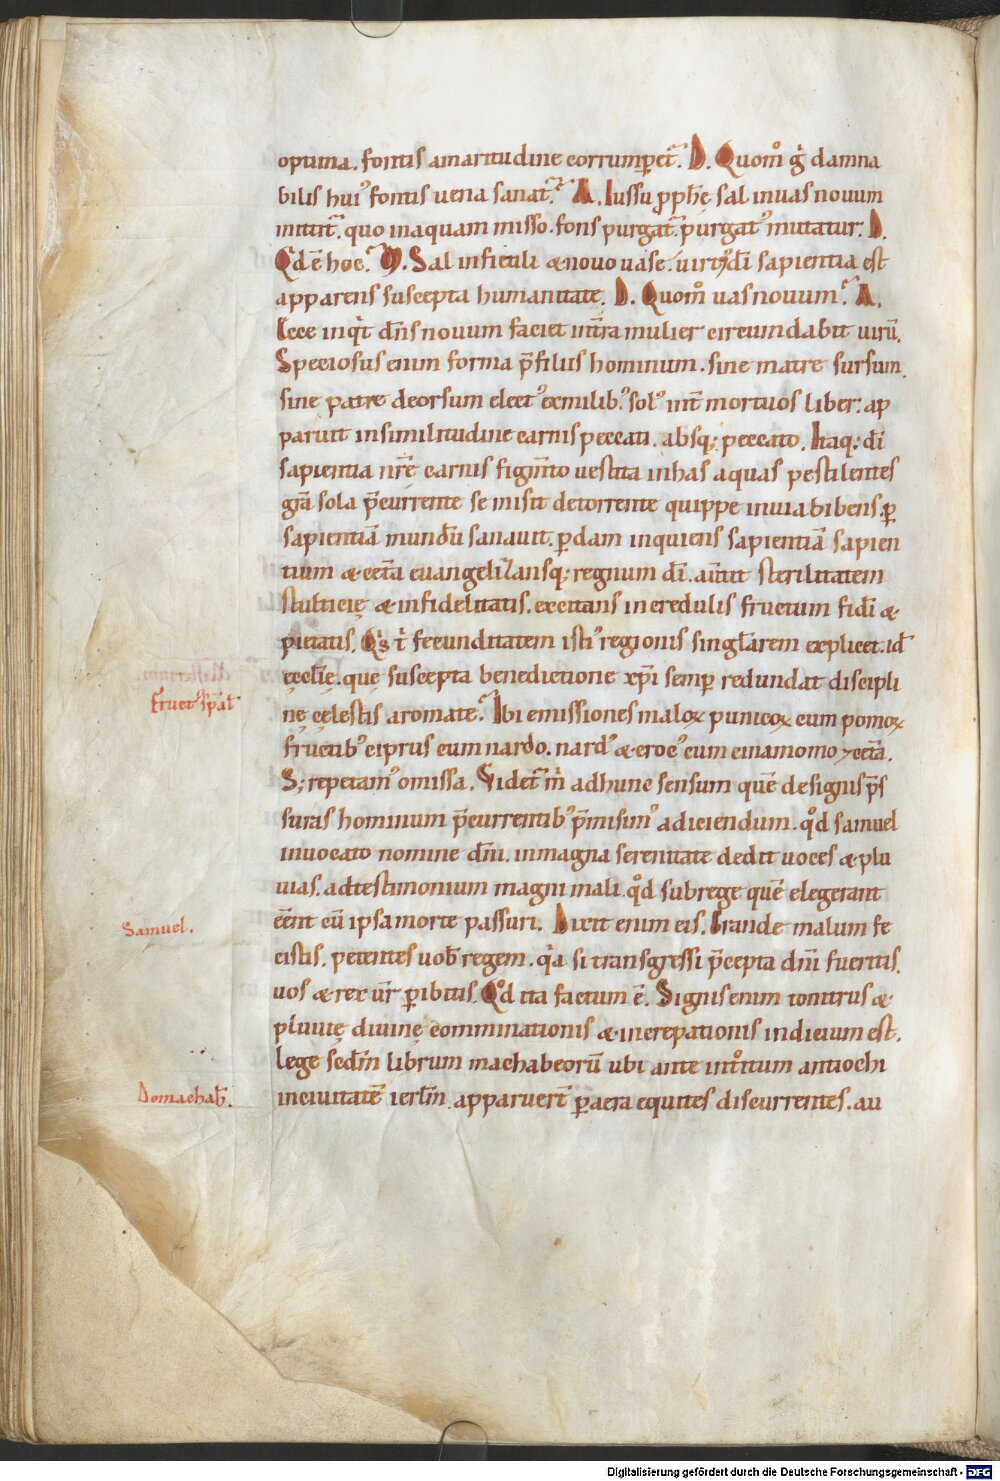 optima. fontis amaritudine corrumpet᷑. D. Quom̊ g̊ damna
bilis hui᷒ fontis uena sanat᷑. A. Iussu ꝓph̄ę sal in uas nouum
mittit᷑. quo in aquam misso. fons purgat᷑. purgat᷒ mutatur. D.
Qd ē hoc. M. Sal in fictili & nouo uase. uirt᷒ dī sapientia est
apparens suscepta humanitate. D. Quom̊ uas nouum. A.
Ecce inqͥt dn̄s nouum faciet in t̄ra mulier circundabit uirū.
Speciosus enim forma p̄ filiis hominum. sine matre sursum.
sine patre deorsum elect᷒ ex milib᷒. sol᷒ int̄ mortuos liber. ap
paruit in similitudine carnis peccati. absq; peccato. Itaq; dī
sapientia nr̄ę carnis figm̄to uestita in has aquas pestilentes
gr̄a sola p̄currente se misit de torrente quippe in uia bibens ꝑ
sapientiā mundū sanauit. ꝑdam inquiens sapientiā sapien
tium & cet̄a euangeliz̄ansq; regnum dī. aūtit sterilitatem
stultitię & infidelitatis. excitans incredulis fructum fidei &
pietatis. Qͥs t̄ fecunditatem isti᷒ regionis singlarem explicet. id᷑
ęccl̄ię. quę suscepta benedictione xp̄i semꝑ redundat discipli
nę cęlestis aromate. Ibi emissiones maloꝝ punicoꝝ cum pomoꝝ
fructib᷒ ciprus cum nardo. nard᷒ & croc᷒ cum cinamomo ⁊ cet̄a.
S; repetam᷒ omissa. Videt᷑ m̄ ad hunc sensum quē de signis p̄s
suras hominum p̄currentib᷒ p̄misim᷒ adiciendum. qd̊ samuel
inuocato nomine dn̄i. in magna serenitate dedit uoces & plu
uias. ad testimonium magni mali. qd̊ sub rege quē elegerant
eēnt cū ipsa morte passuri. Dicit enim eis. Grande malum fe
cistis. petentes uob̄ regem. qͥa si transgressi p̄cepta dn̄i fueritis.
uos & rex ur̄ ꝑibitis. Qd̊ ita factum ē. Signis enim tonitrus &
pluuię diuinę comminationis & increpationis indicium est.
lege sed̄m librum machabeorū ubi ante int̊itum antiochi
in ciuitatē ierlm̄. apparuer̄t ꝑ aera equites discurrentes. au
Fruct᷒ sp̄al᷑
Samuel.
Do machab̄.